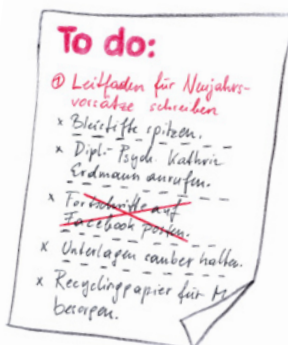 To do:
① Leitfaden für Neujahrs-
vorsätze schreiben
x Bleistifte spitzen.
x Dipl.-Psych. Kathrin
Erdmann anrufen.
x Fortschritte auf
Facebook posten.
x Unterlagen sauber halten.
x Recyclingpapier für M
besorgen.